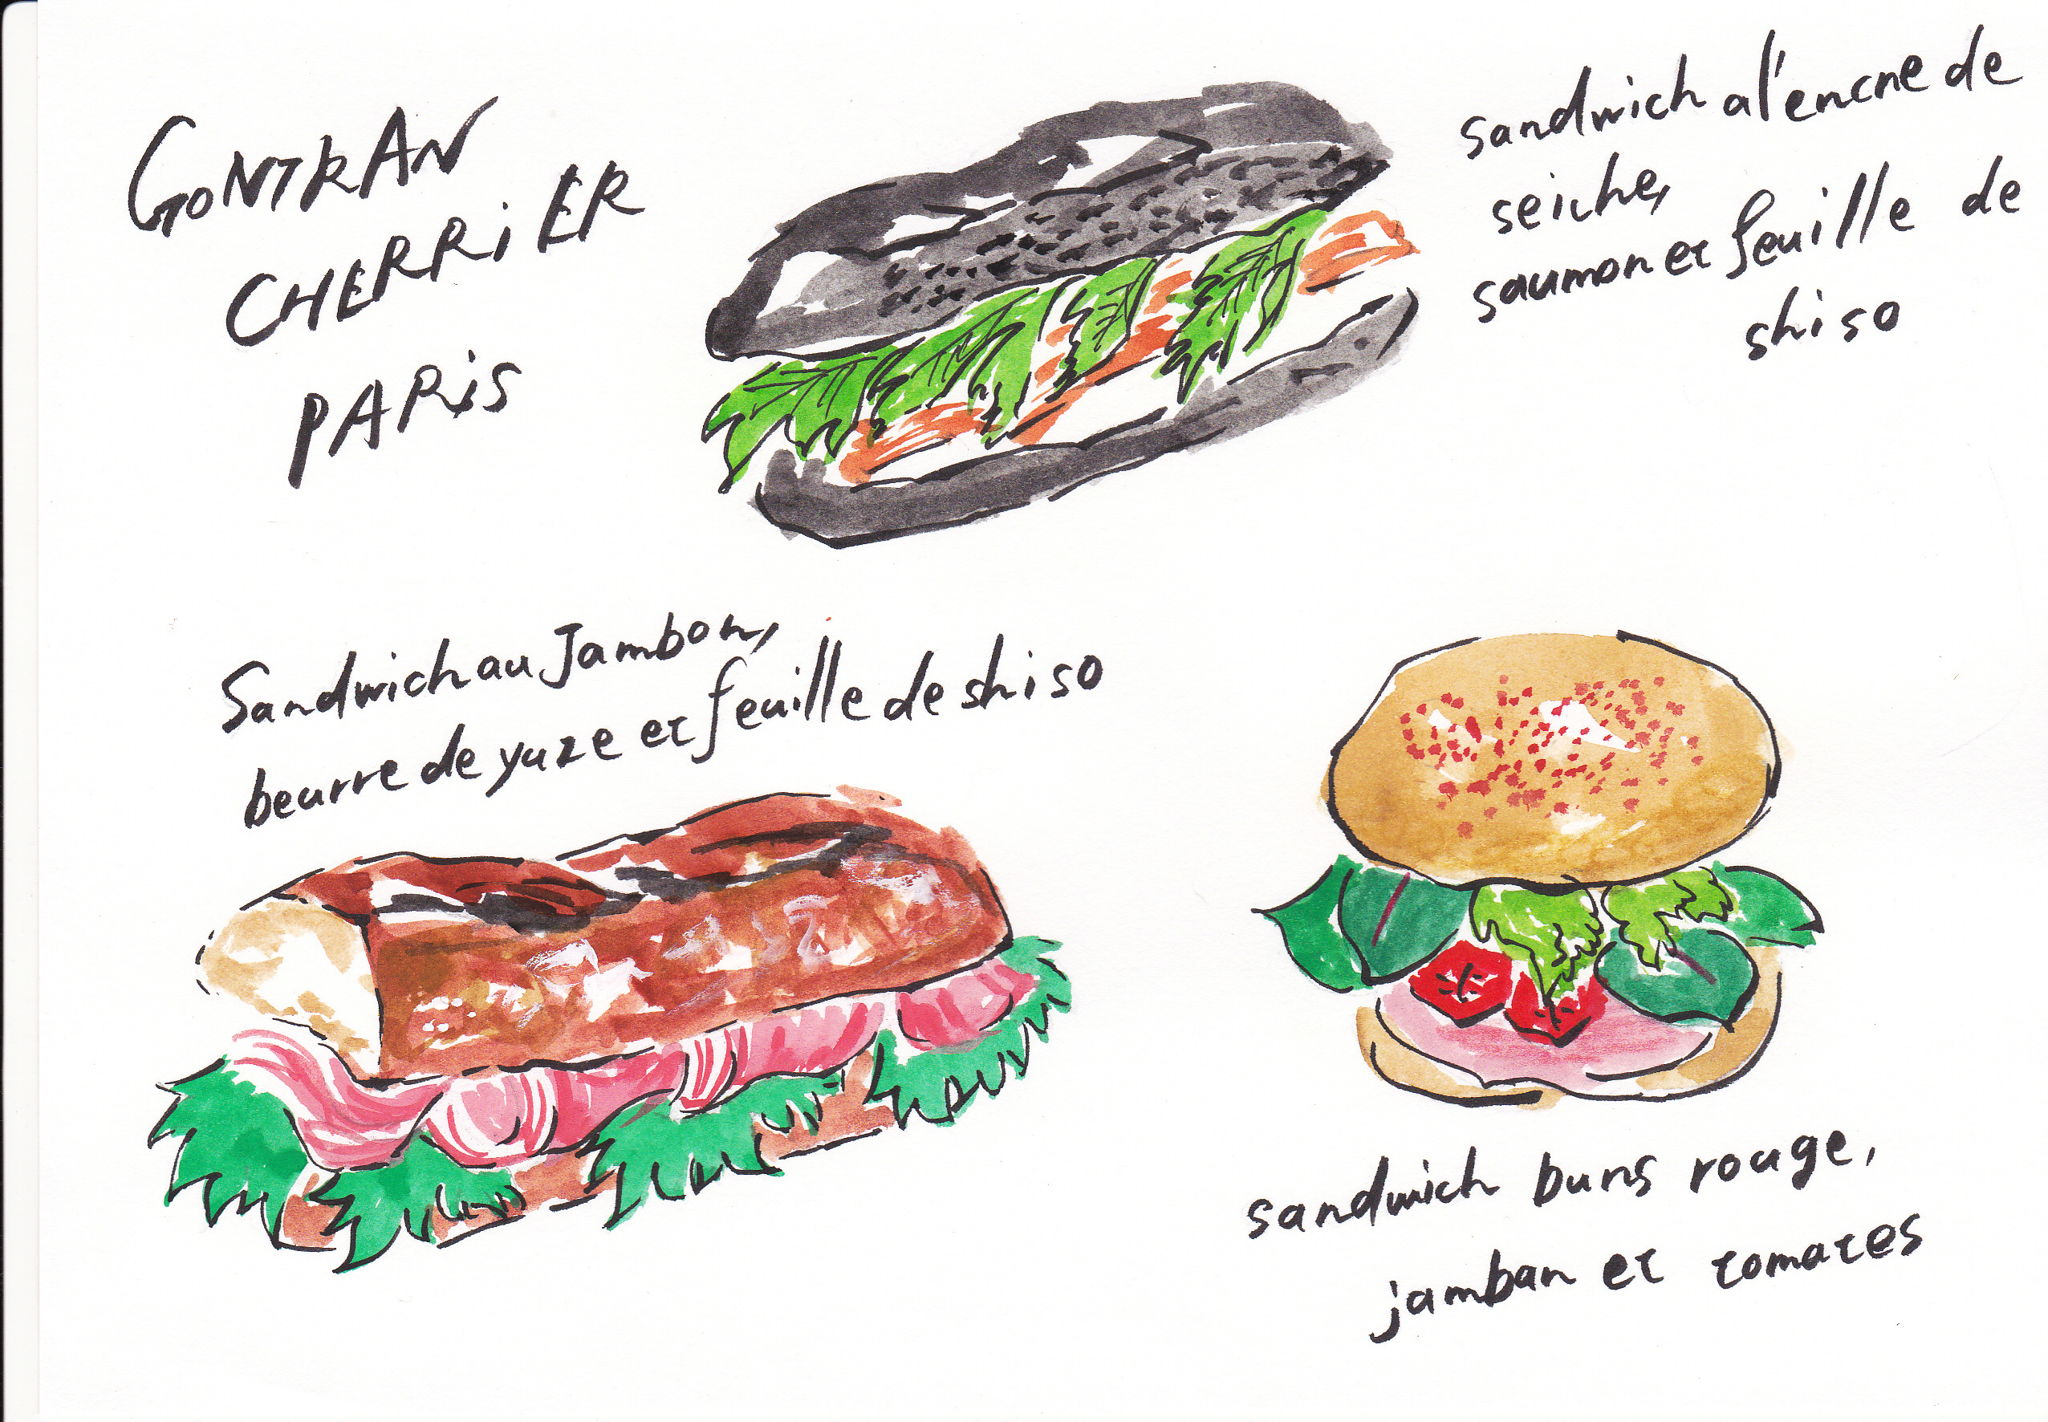 GONTRAN
CHERRIER
PARiS
sandwich a l'encre de
seiche,
saumon et feuille de
shiso
Sandwich au Jambon,
beurre de yuze et feuille de shiso
sandwich buns rouge,
jamban et tomates